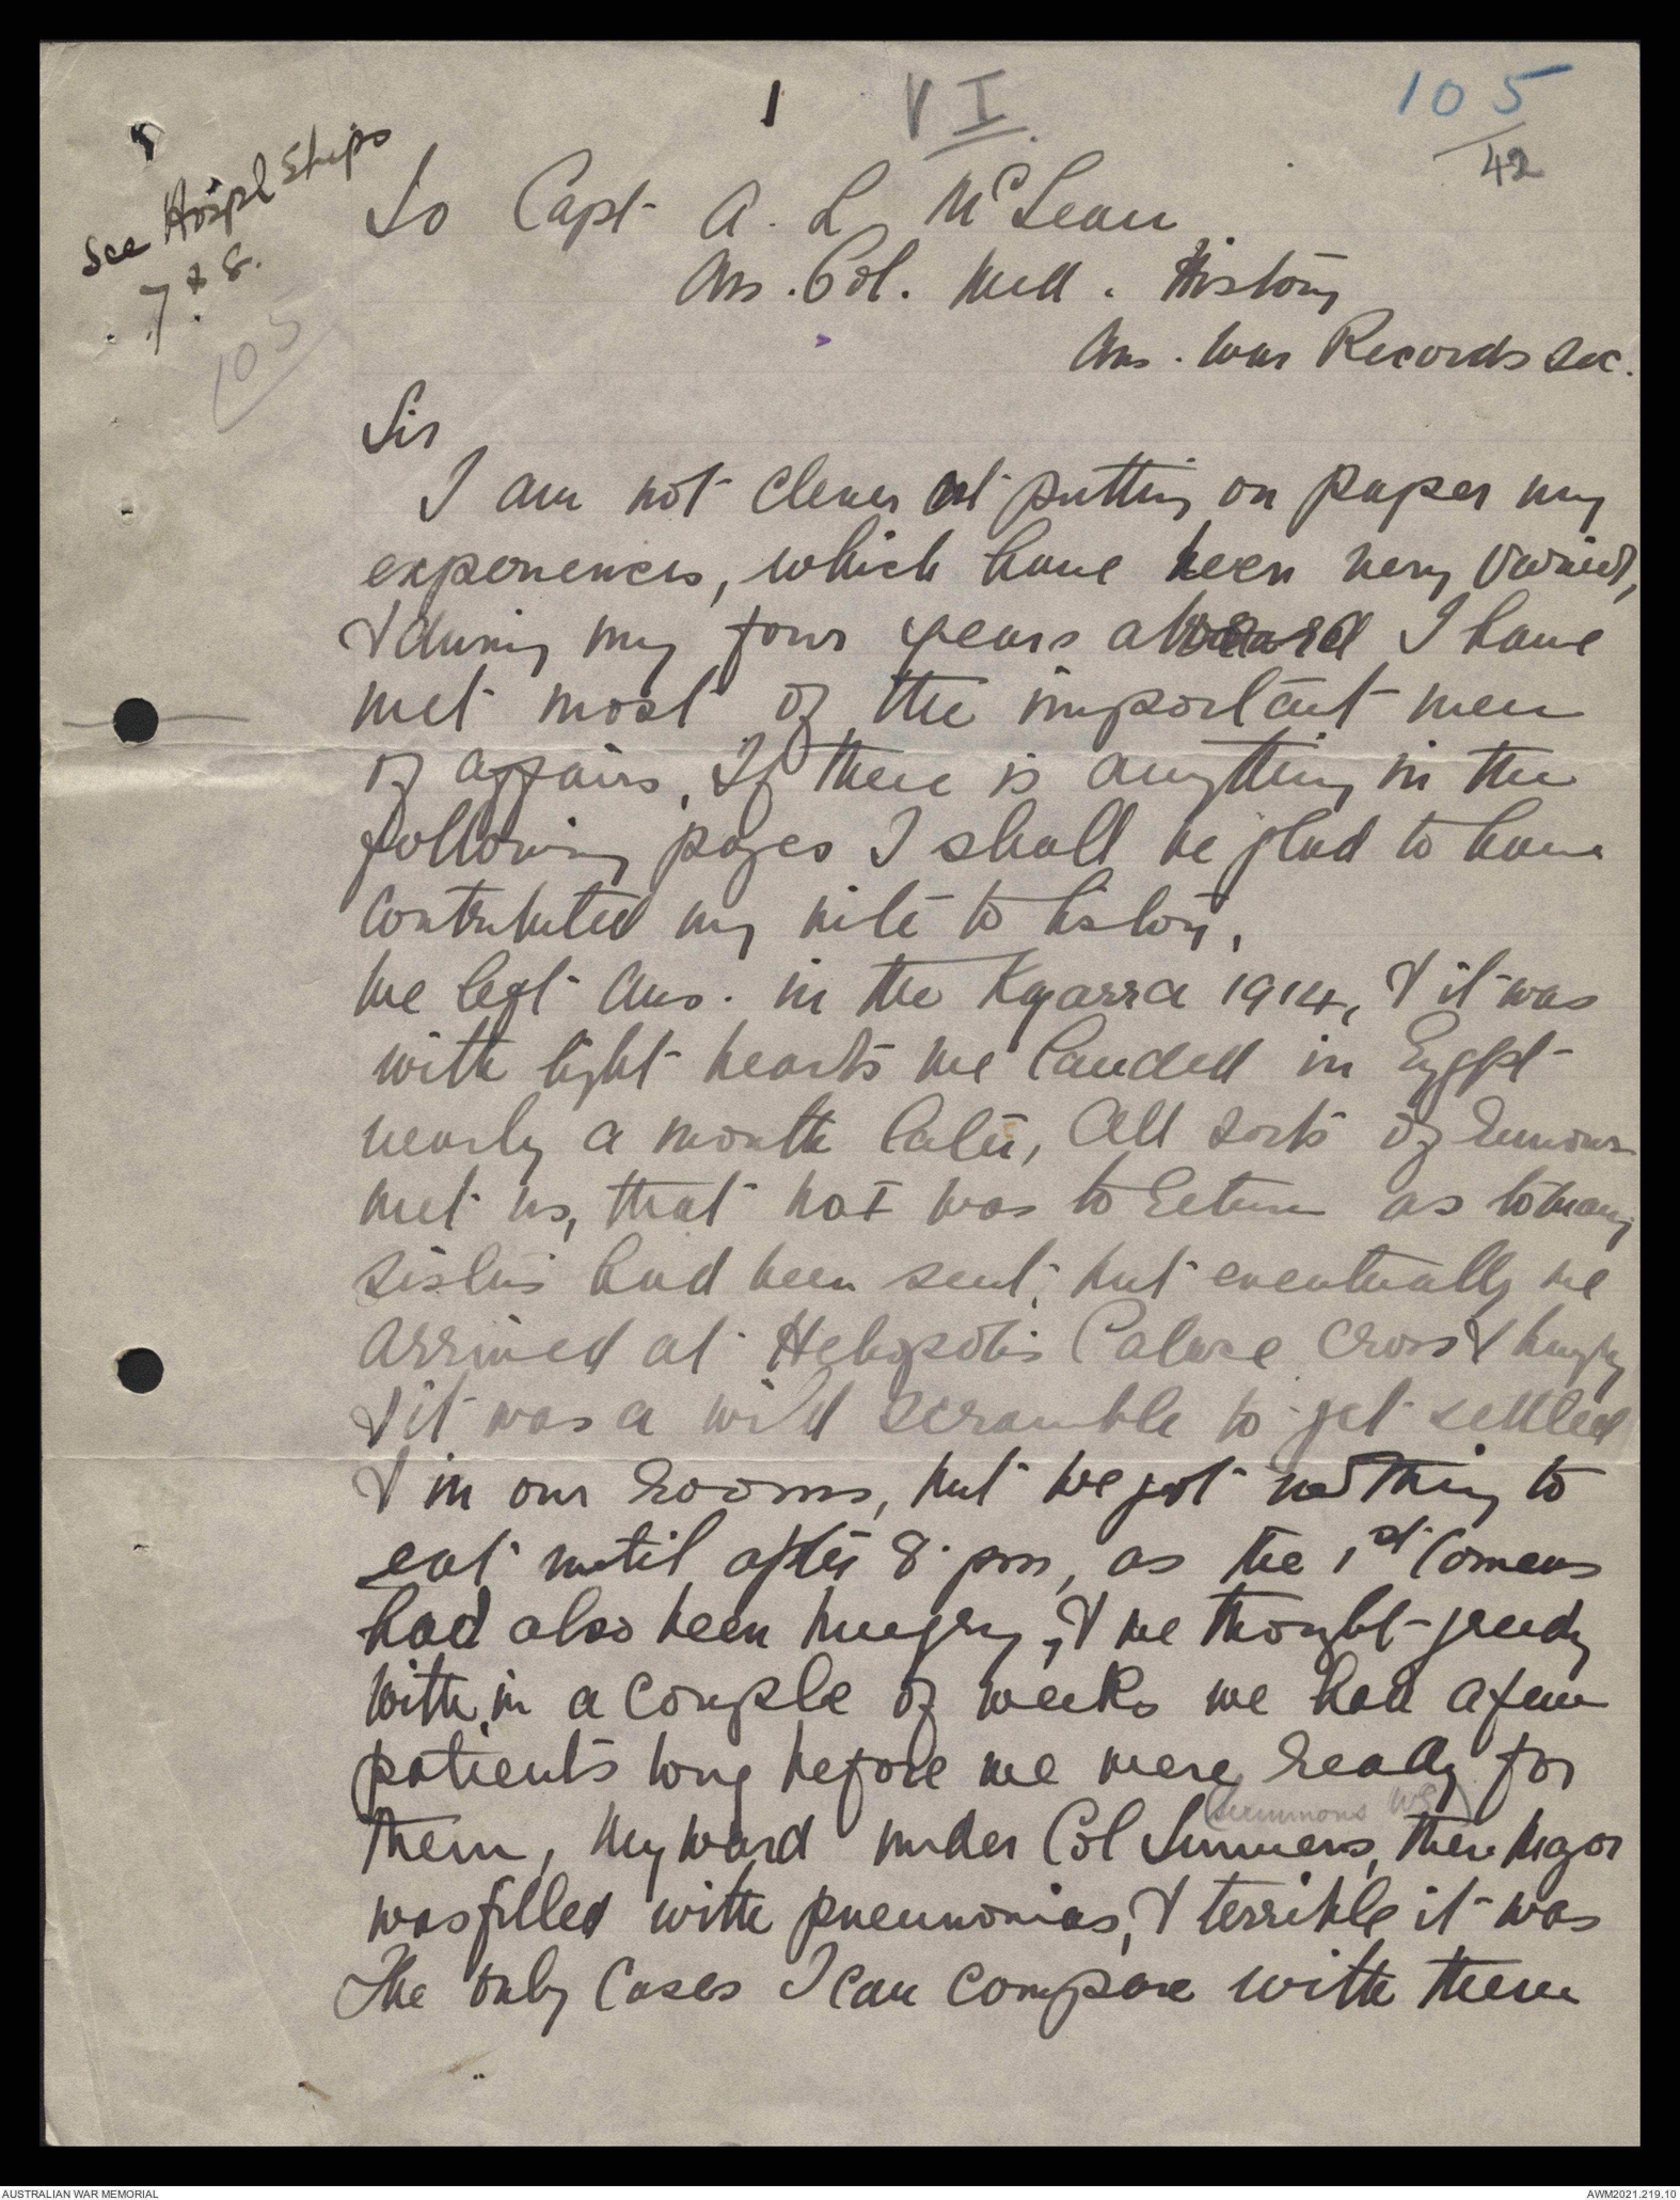 1 VI 105
42
See Hospl Ships
7 & 8.
105
To Capt A. L. McLean
Aus. Col. Med. History
Aus. War Records Sec.
Sir
I am not clever at putting on paper my
experiences, which have been very varied,
& during my four years aboard I have
met most of the important men
of affairs, If there is anything in the
following pages I shall be glad to have
contributed my mite to history.
We left Aus. in the Kyarra 1914, & it was
with light hearts we landed in Egypt
nearly a month later, All sorts of rumours
met us, that No I was to return as to many
sisters had been sent, but eventually we
arrived at Heliopolis Palace cross & hungry
& it was a wild scramble to get settled
& in our rooms, but we got nothing to
eat until after 8. pm, as the 1st Comers
had also been hungry, & we thought greedy
with in a couple of weeks we had a few
patients long before we were ready for
(Summons WR)
them, My ward under Col Summers, then Major
was filled with pneumonias, & terrible it was
The only Cases I can compare with them
AUSTRALIAN WAR MEMORIAL
AWM2021.219.10